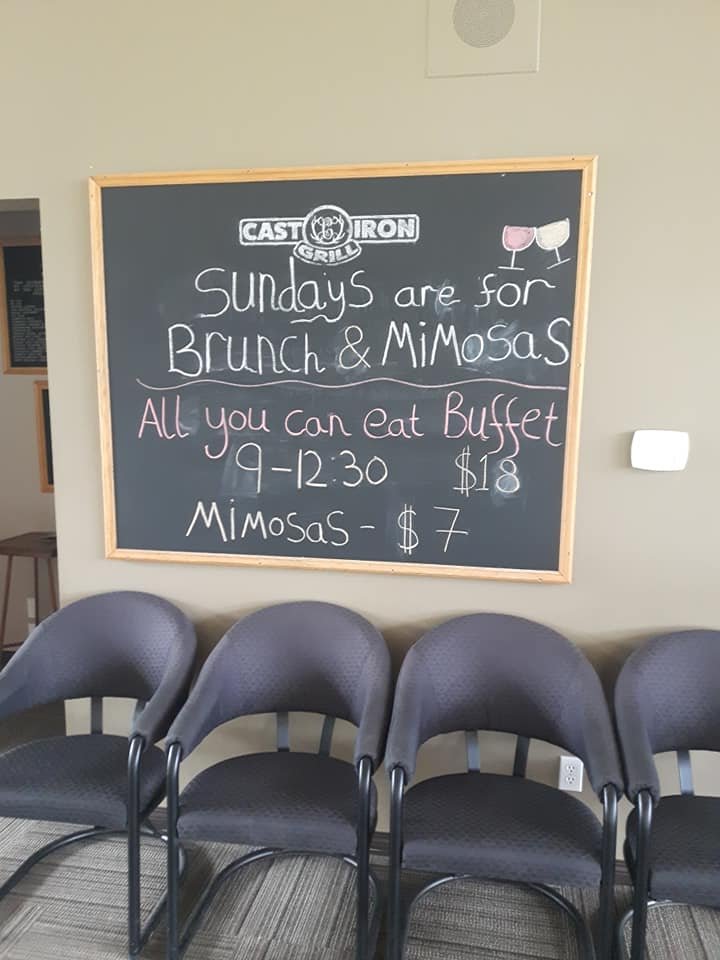 CAST IRON
GRILL
Sundays are for
Brunch & Mimosas
All you can eat Buffet
9-12:30 $18
Mimosas - $7